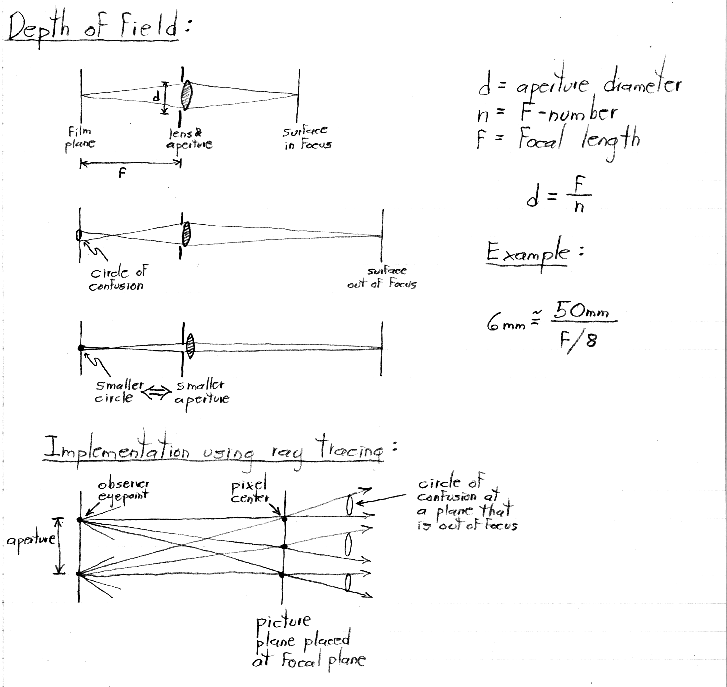 Depth of Field:
d
Film
plane
lens &
aperture
surface
in Focus
F
d = aperture diameter
n = F-number
F = Focal length
d = F
n
circle of
confusion
surface
out of Focus
Example:
6mm ≈ 50mm
F/8
smaller
circle
⇔
smaller
aperture
Implementation using ray tracing:
observer
eyepoint
pixel
center
circle of
confusion at
a plane that
is out of Focus
aperture
picture
plane placed
at Focal plane